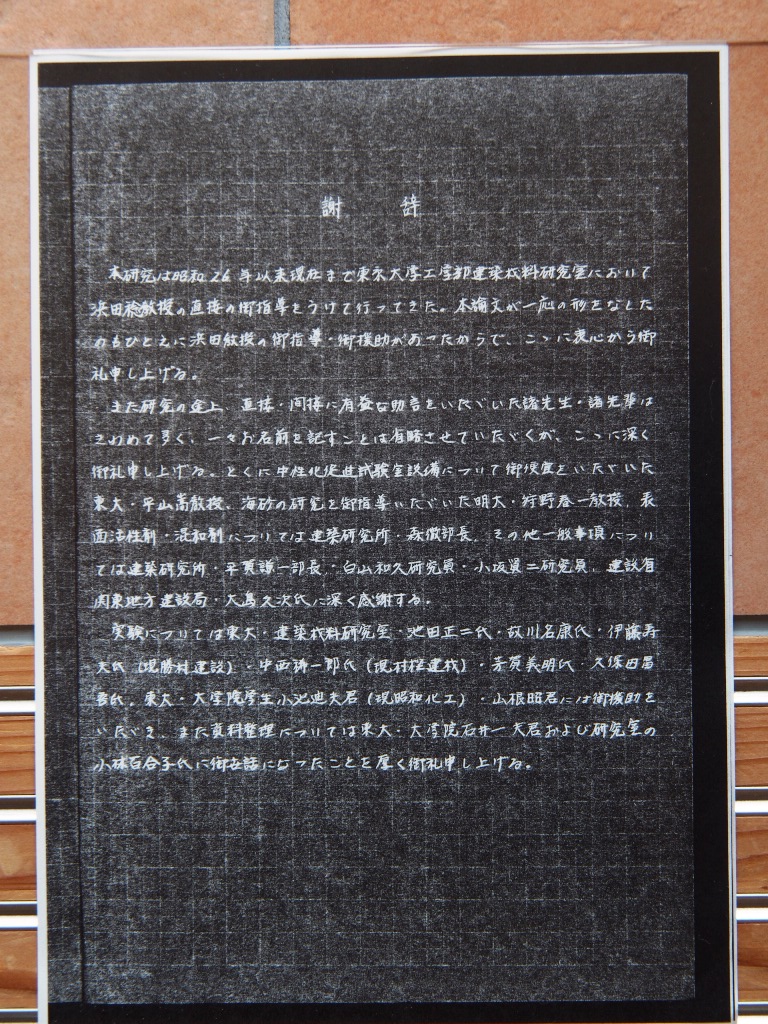 謝 辞
本研究は昭和26年以来現在まで東京大学工学部建築材料研究室において
浜田稔教授の直接の御指導をうけて行ってきた。本論文が一応の形をなした
のもひとえに浜田教授の御指導・御援助があったからで、ここに衷心から御
礼申し上げる。
また研究の途上、直接・間接に有益な助言をいただいた諸先生・諸先輩は
きわめて多く、一々お名前を記すことは省略させていただくが、ここに深く
御礼申し上げる。とくに中性化促進試験室設備について御便宜をいただいた
東大・平山嵩教授、海砂の研究を御指導いただいた明大・狩野春一教授、表
面活性剤・混和剤については建築研究所・森徹部長、その他一般事項につい
ては建築研究所・平賀謙一部長・白山和久研究員・小坂義二研究員、建設省
関東地方建設局・大島久次氏に深く感謝する。
実験については東大・建築材料研究室・池田正二氏・故川名康氏・伊藤寿
夫氏(現勝村建設)・中西 一郎氏(現村樫建材)・芳賀美明氏・久保田昌
吾氏、東大・大学院学生小池迪夫君(現昭和化工)・山根昭君には御援助を
いただき、また資料整理については東大・大学院石井一夫君および研究室の
小林百合子氏に御世話になったことを厚く御礼申し上げる。